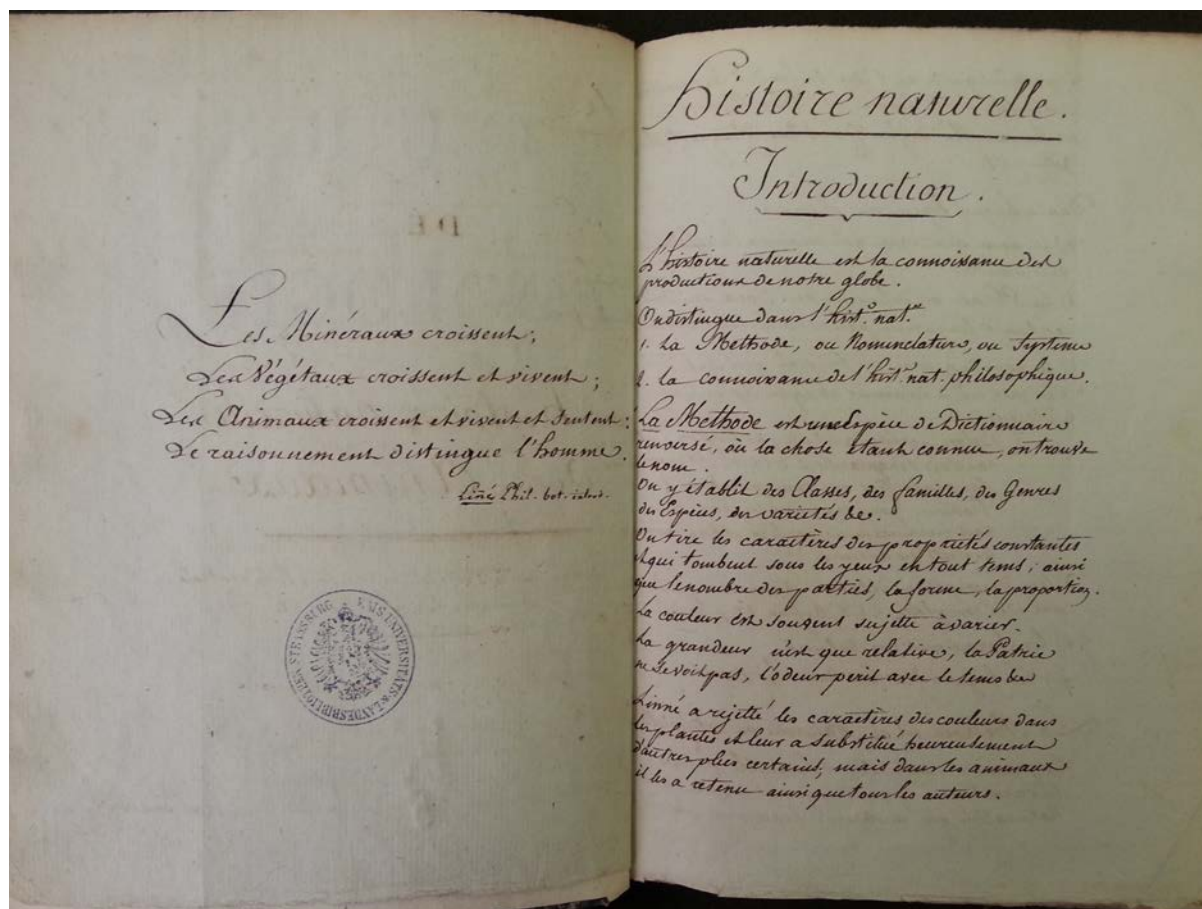 Les Minéraux croissent;
Les Végétaux croissent et vivent;
Les Animaux croissent et vivent et sentent:
Le raisonnement distingue l'homme.
Liñé Phil. bot.
KAIS. UNIVERSITÄTS- & LANDESBIBLIOTHEK STRASSBURG
Histoire naturelle.
Introduction.
L'histoire naturelle est la connoissance des
productions de notre globe.
On distingue dans l'histo. natlle
1. La Methode, ou Nomenclature, ou Systeme
2. la connoissance de l'hist. nat. philosophique.
La Methode est une Espèce de Dictionnaire
renversé, où la chose étant connue, on trouve
le nom.
On y établit des Classes, des familles, des Genres
des Espèces, des varietés &c.
On tire les caractères des propriétés constantes
& qui tombent sous les yeux en tout tems, ainsi
que le nombre des parties, la forme, la proportion.
La couleur est souvent sujette à varier.
La grandeur n'est que relative, la Patrie
ne se voit pas, l'odeur perit avec le tems &c
Linné a rejetté les caractères des couleurs dans
les plantes et leur a substitué heureusement
d'autres plus certains, mais dans les animaux
il les a retenu ainsi que tous les auteurs.